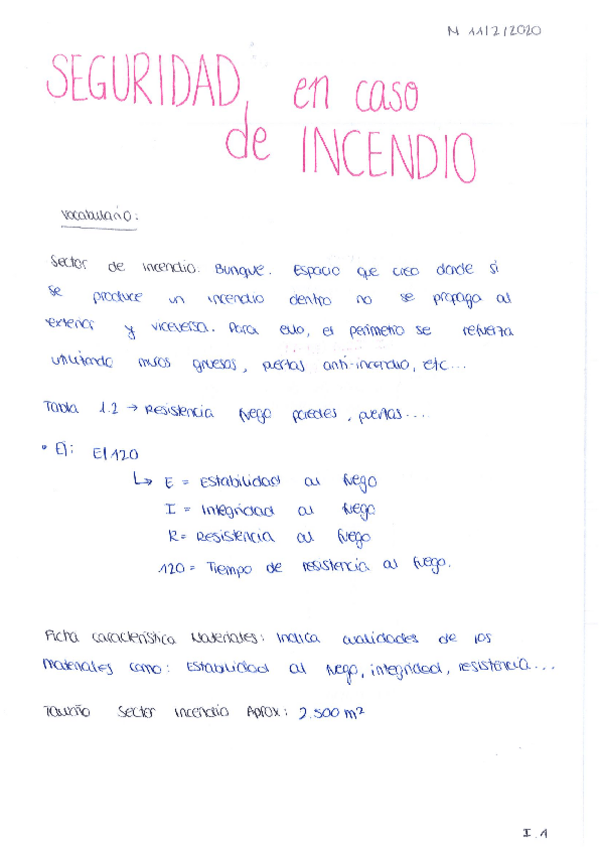 M 11/2/2020
SEGURIDAD en caso
de INCENDIO
Vocabulario:
Sector de incendio. Bunque. Espacio que creo donde si
se produce un incendio dentro no se propaga al
exterior y viceversa. Para ello, el perímetro se refuerza
utilizando muros gruesos, puertas anti-incendio, etc...
Tabla 1.2 → Resistencia fuego paredes, puertas....
• Ej: EI 120
↳ E = Estabilidad al fuego
I = Integridad al fuego
R = Resistencia al fuego
120 = Tiempo de resistencia al fuego.
Ficha característica Materiales: Indica cualidades de los
materiales como: Estabilidad al fuego, integridad, resistencia...
Tamaño Sector Incendio Aprox: 2.500 m²
I.1